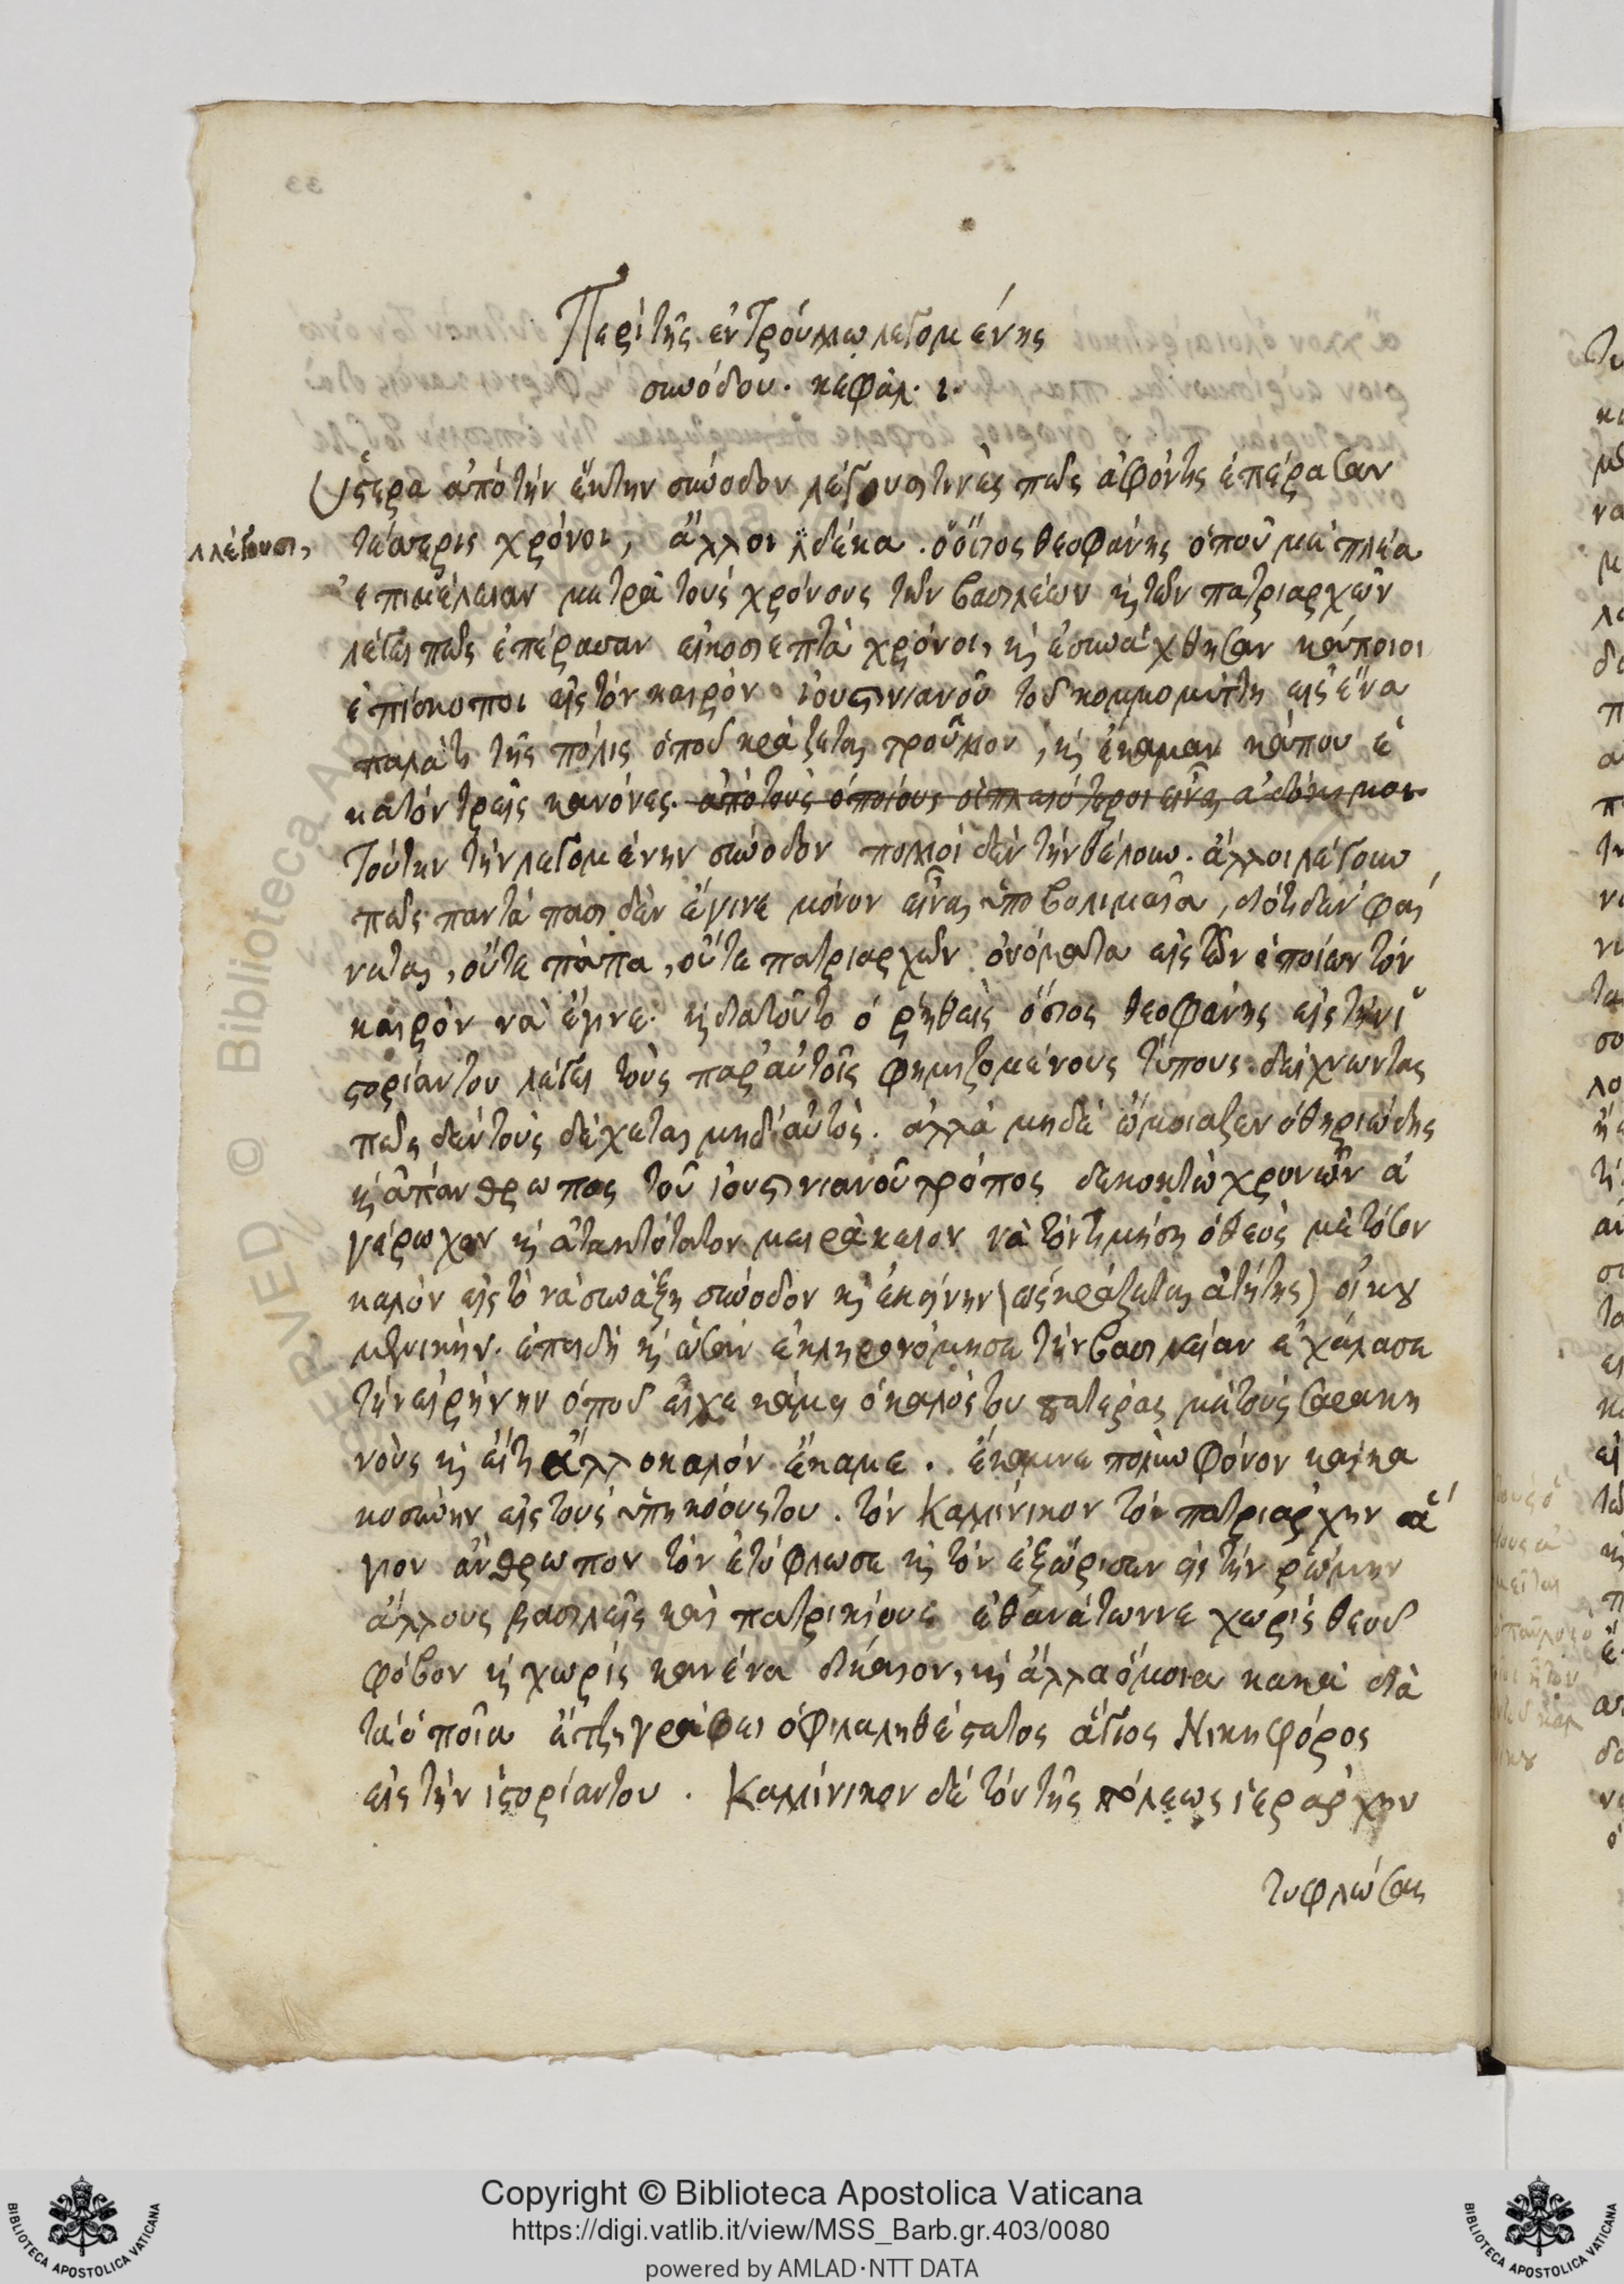 Περὶ τῆς ἐν Τρούλλῳ λεγομένης
συνόδου. κεφάλ. ι.
Ὕστερα ἀπὸ τὴν ἕκτην σύνοδον λέγουσι τινὲς πῶς ἀφόντης ἐπέρασαν
λέγουσι,
τέσσερις χρόνοι, ἄλλοι δέκα. ὁ ὅσιος θεοφάνης ὁποῦ μὲ πλέα
ἐπιμέλειαν μετρᾶ τοὺς χρόνους τῶν βασιλέων κ τῶν πατριαρχῶν
λέγει πῶς ἐπέρασαν εἰκοσιεπτὰ χρόνοι, κ ἐσυνάχθησαν κάποιοι
ἐπίσκοποι εἰς τὸν καιρὸν ἰουστινιανοῦ τοῦ κομμομύτη εἰς ἕνα
παλάτι τῆς πόλις ὁποῦ κράζεται τροῦλλον, κ ἔκαμαν κάπου ἑ
κατὸν τρεῖς κανόνες. ἀπὸ τοὺς ὁποίους οἱ πλειότεροι εἶναι ἀδόκιμοι
Τούτην τὴν λεγομένην σύνοδον πολλοὶ δὲν τὴν θέλουν. ἄλλοι λέγουν
πῶς παντάπασι δὲν ἔγινε μόνον εἶναι ὑποβολιμαῖα, διότι δὲν φαί
νεται, οὔτε πάπα, οὔτε πατριαρχῶν ὀνόματα εἰς τῶν ὁποίων τὸν
καιρὸν νὰ ἔγινε. κ διατοῦτο ὁ ῥηθεὶς ὅσιος θεοφάνης εἰς τὴν ἱ
στορίαντου λέγει τοὺς παρ' αὐτοῖς φημιζομένους τύπους. δείχνωντας
πῶς δὲν τοὺς δέχεται μηδ' αὐτὸς. ἀλλὰ μηδὲ ὥμοιαζεν ὁ θηριώδης
κ ἀπάνθρωπος τοῦ ἰουστινιανοῦ τρόπος δεκοκτὼ χρονῶν ἀ
γέρωχον κ ἀτακτότατον μειράκιον νὰ τὸν τιμήση ὁ θεὸς μὲ τόσον
καλὸν εἰς τὸ νὰ συνάξη σύνοδον κ ἐκείνην (ὡς κράζεται ἀτήτης) οἰκȣ
μενικὴν. ἐπειδὴ κ ὡσὰν ἐκληρονόμησε τὴν βασιλείαν ἐχάλασε
τὴν εἰρήνην ὁποῦ εἶχε κάμει ὁ καλόςτου πατέρας μὲ τοὺς σαρακη
νοὺς κ εἴτι ἄλλο καλὸν ἔκαμε. ἔκαμνε πολὺν φόνον καὶ κα
κοσύνην εἰς τοὺς ὑπηκόουςτου. τὸν Καλλίνικον τὸν πατριάρχην ἅ
γιον ἄνθρωπον τὸν ἐτύφλωσε κ τὸν ἐξώρισεν εἰς τὴν ῥώμην
ἄλλους βασιλεῖς καὶ πατρικίους ἐθανάτωννε χωρὶς θεοῦ
φόβον κ χωρὶς κανένα δίκαιον, κ ἄλλα ὅμοια κακὰ διὰ
τὰ ὁποῖα ἔτζι γράφει ὁ φιλαληθέστατος ἅγιος Νικηφόρος
εἰς τὴν ἱστορίαντου. Καλλίνικον δὲ τὸν τῆς πόλεως ἱεράρχην
τυφλώσας
Copyright © Biblioteca Apostolica Vaticana
https://digi.vatlib.it/view/MSS_Barb.gr.403/0080
powered by AMLAD·NTT DATA